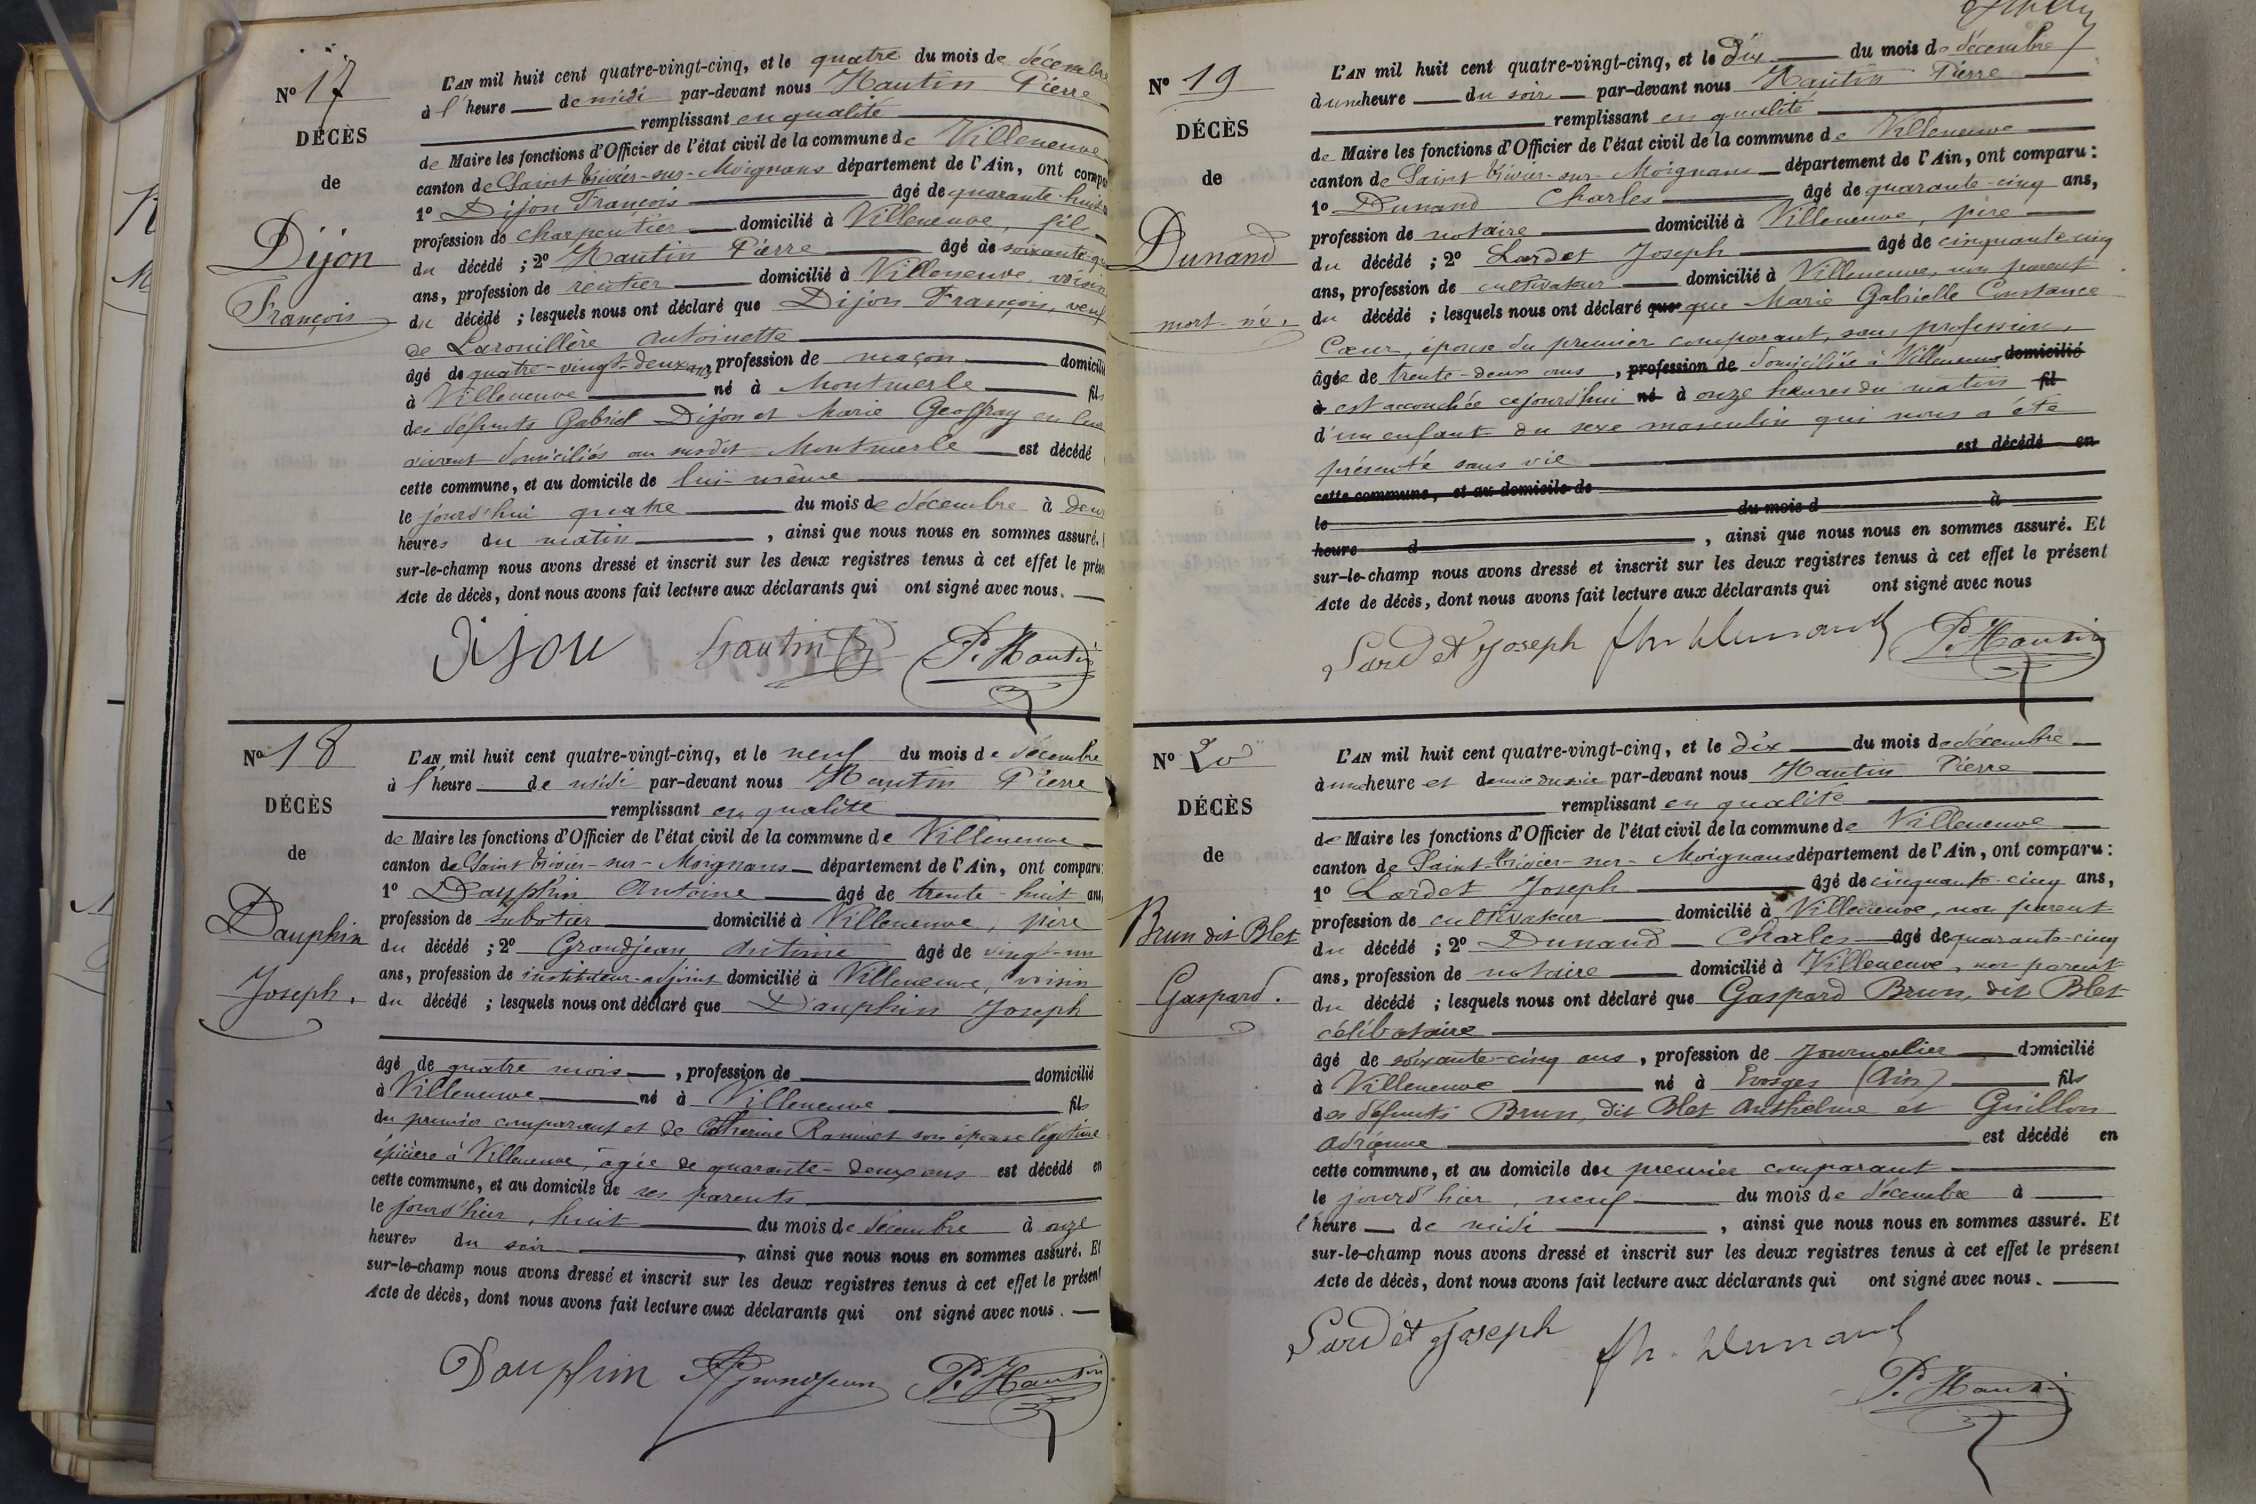 Nº 17
DÉCÈS
de
Dijon
François
L'AN mil huit cent quatre-vingt-cinq, et le quatre du mois de décembre
à l'heure de midi par-devant nous Hautin Pierre
remplissant en qualité
de Maire les fonctions d'Officier de l'état civil de la commune de Villeneuve
canton de Saint Trivier-sur-Moignans département de l'Ain, ont compa
1º Dijon François âgé de quarante-huit
profession de charpentier domicilié à Villeneuve, fils
du décédé ; 2º Hautin Pierre âgé de soixante
ans, profession de rentier domicilié à Villeneuve, voisin
du décédé ; lesquels nous ont déclaré que Dijon François, veuf
de Larouillère Antoinette
âgé de quatre-vingt-deux ans, profession de maçon domicilié
à Villeneuve né à Montmerle fils
des défunts Gabriel Dijon et Marie Geoffray en leur
vivant domiciliés au susdit Montmerle est décédé
cette commune, et au domicile de lui-même
le jourd'hui quatre du mois de décembre à deux
heures du matin, ainsi que nous nous en sommes assuré.
sur-le-champ nous avons dressé et inscrit sur les deux registres tenus à cet effet le présent
Acte de décès, dont nous avons fait lecture aux déclarants qui ont signé avec nous.
Dijon Hautin P. Hautin
Nº 18
DÉCÈS
de
Dauphin
Joseph.
L'AN mil huit cent quatre-vingt-cinq, et le neuf du mois de décembre
à l'heure de midi par-devant nous Hautin Pierre
remplissant en qualité
de Maire les fonctions d'Officier de l'état civil de la commune de Villeneuve
canton de Saint Trivier-sur-Moignans département de l'Ain, ont comparu:
1º Dauphin Antoine âgé de trente-huit ans,
profession de sabotier domicilié à Villeneuve, père
du décédé ; 2º Grandjean Antoine âgé de vingt-un
ans, profession de instituteur-adjoint domicilié à Villeneuve, voisin
du décédé ; lesquels nous ont déclaré que Dauphin Joseph
âgé de quatre mois, profession de domicilié
à Villeneuve né à Villeneuve fils
du premier comparant et de Catherine son épouse légitime
épicière à Villeneuve, âgée de quarante-deux ans est décédé en
cette commune, et au domicile de ses parents
le jourd'hier, huit du mois de décembre à onze
heures du soir, ainsi que nous nous en sommes assuré. Et
sur-le-champ nous avons dressé et inscrit sur les deux registres tenus à cet effet le présent
Acte de décès, dont nous avons fait lecture aux déclarants qui ont signé avec nous.
Dauphin Grandjean P. Hautin
Nº 19
DÉCÈS
de
Dunand
mort-né.
L'AN mil huit cent quatre-vingt-cinq, et le dix du mois de décembre
à une heure du soir par-devant nous Hautin Pierre
remplissant en qualité
de Maire les fonctions d'Officier de l'état civil de la commune de Villeneuve
canton de Saint Trivier-sur-Moignans département de l'Ain, ont comparu:
1º Dunand Charles âgé de quarante-cinq ans,
profession de notaire domicilié à Villeneuve, père
du décédé ; 2º Lardet Joseph âgé de cinquante-cinq
ans, profession de cultivateur domicilié à Villeneuve, non parent
du décédé ; lesquels nous ont déclaré que que Marie Gabrielle Constance
Cœur, épouse du premier comparant, sans profession,
âgée de trente-deux ans, profession de domiciliée à Villeneuve domicilié
à est accouchée cejourd'hui né à onze heures du matin fil
d'un enfant du sexe masculin qui nous a été
présenté sans vie est décédé en
cette commune, et au domicile de
le du mois d à
heure d, ainsi que nous nous en sommes assuré. Et
sur-le-champ nous avons dressé et inscrit sur les deux registres tenus à cet effet le présent
Acte de décès, dont nous avons fait lecture aux déclarants qui ont signé avec nous
Lardet Joseph Ch Dunand P. Hautin
Nº 20
DÉCÈS
de
Brun dit Blet
Gaspard.
L'AN mil huit cent quatre-vingt-cinq, et le dix du mois de décembre
à une heure et demie du soir par-devant nous Hautin Pierre
remplissant en qualité
de Maire les fonctions d'Officier de l'état civil de la commune de Villeneuve
canton de Saint-Trivier-sur-Moignans département de l'Ain, ont comparu:
1º Lardet Joseph âgé de cinquante-cinq ans,
profession de cultivateur domicilié à Villeneuve, non parent
du décédé ; 2º Dunand Charles âgé de quarante-cinq
ans, profession de notaire domicilié à Villeneuve, non parent
du décédé ; lesquels nous ont déclaré que Gaspard Brun, dit Blet
célibataire
âgé de soixante-cinq ans, profession de Journalier domicilié
à Villeneuve né à Evosges (Ain) fils
des défunts Brun, dit Blet Anthelme et Guillon
Adrienne est décédé en
cette commune, et au domicile du premier comparant
le jourd'hier, neuf du mois de décembre à
l'heure de midi, ainsi que nous nous en sommes assuré. Et
sur-le-champ nous avons dressé et inscrit sur les deux registres tenus à cet effet le présent
Acte de décès, dont nous avons fait lecture aux déclarants qui ont signé avec nous.
Lardet Joseph Ch. Dunand
P. Hautin